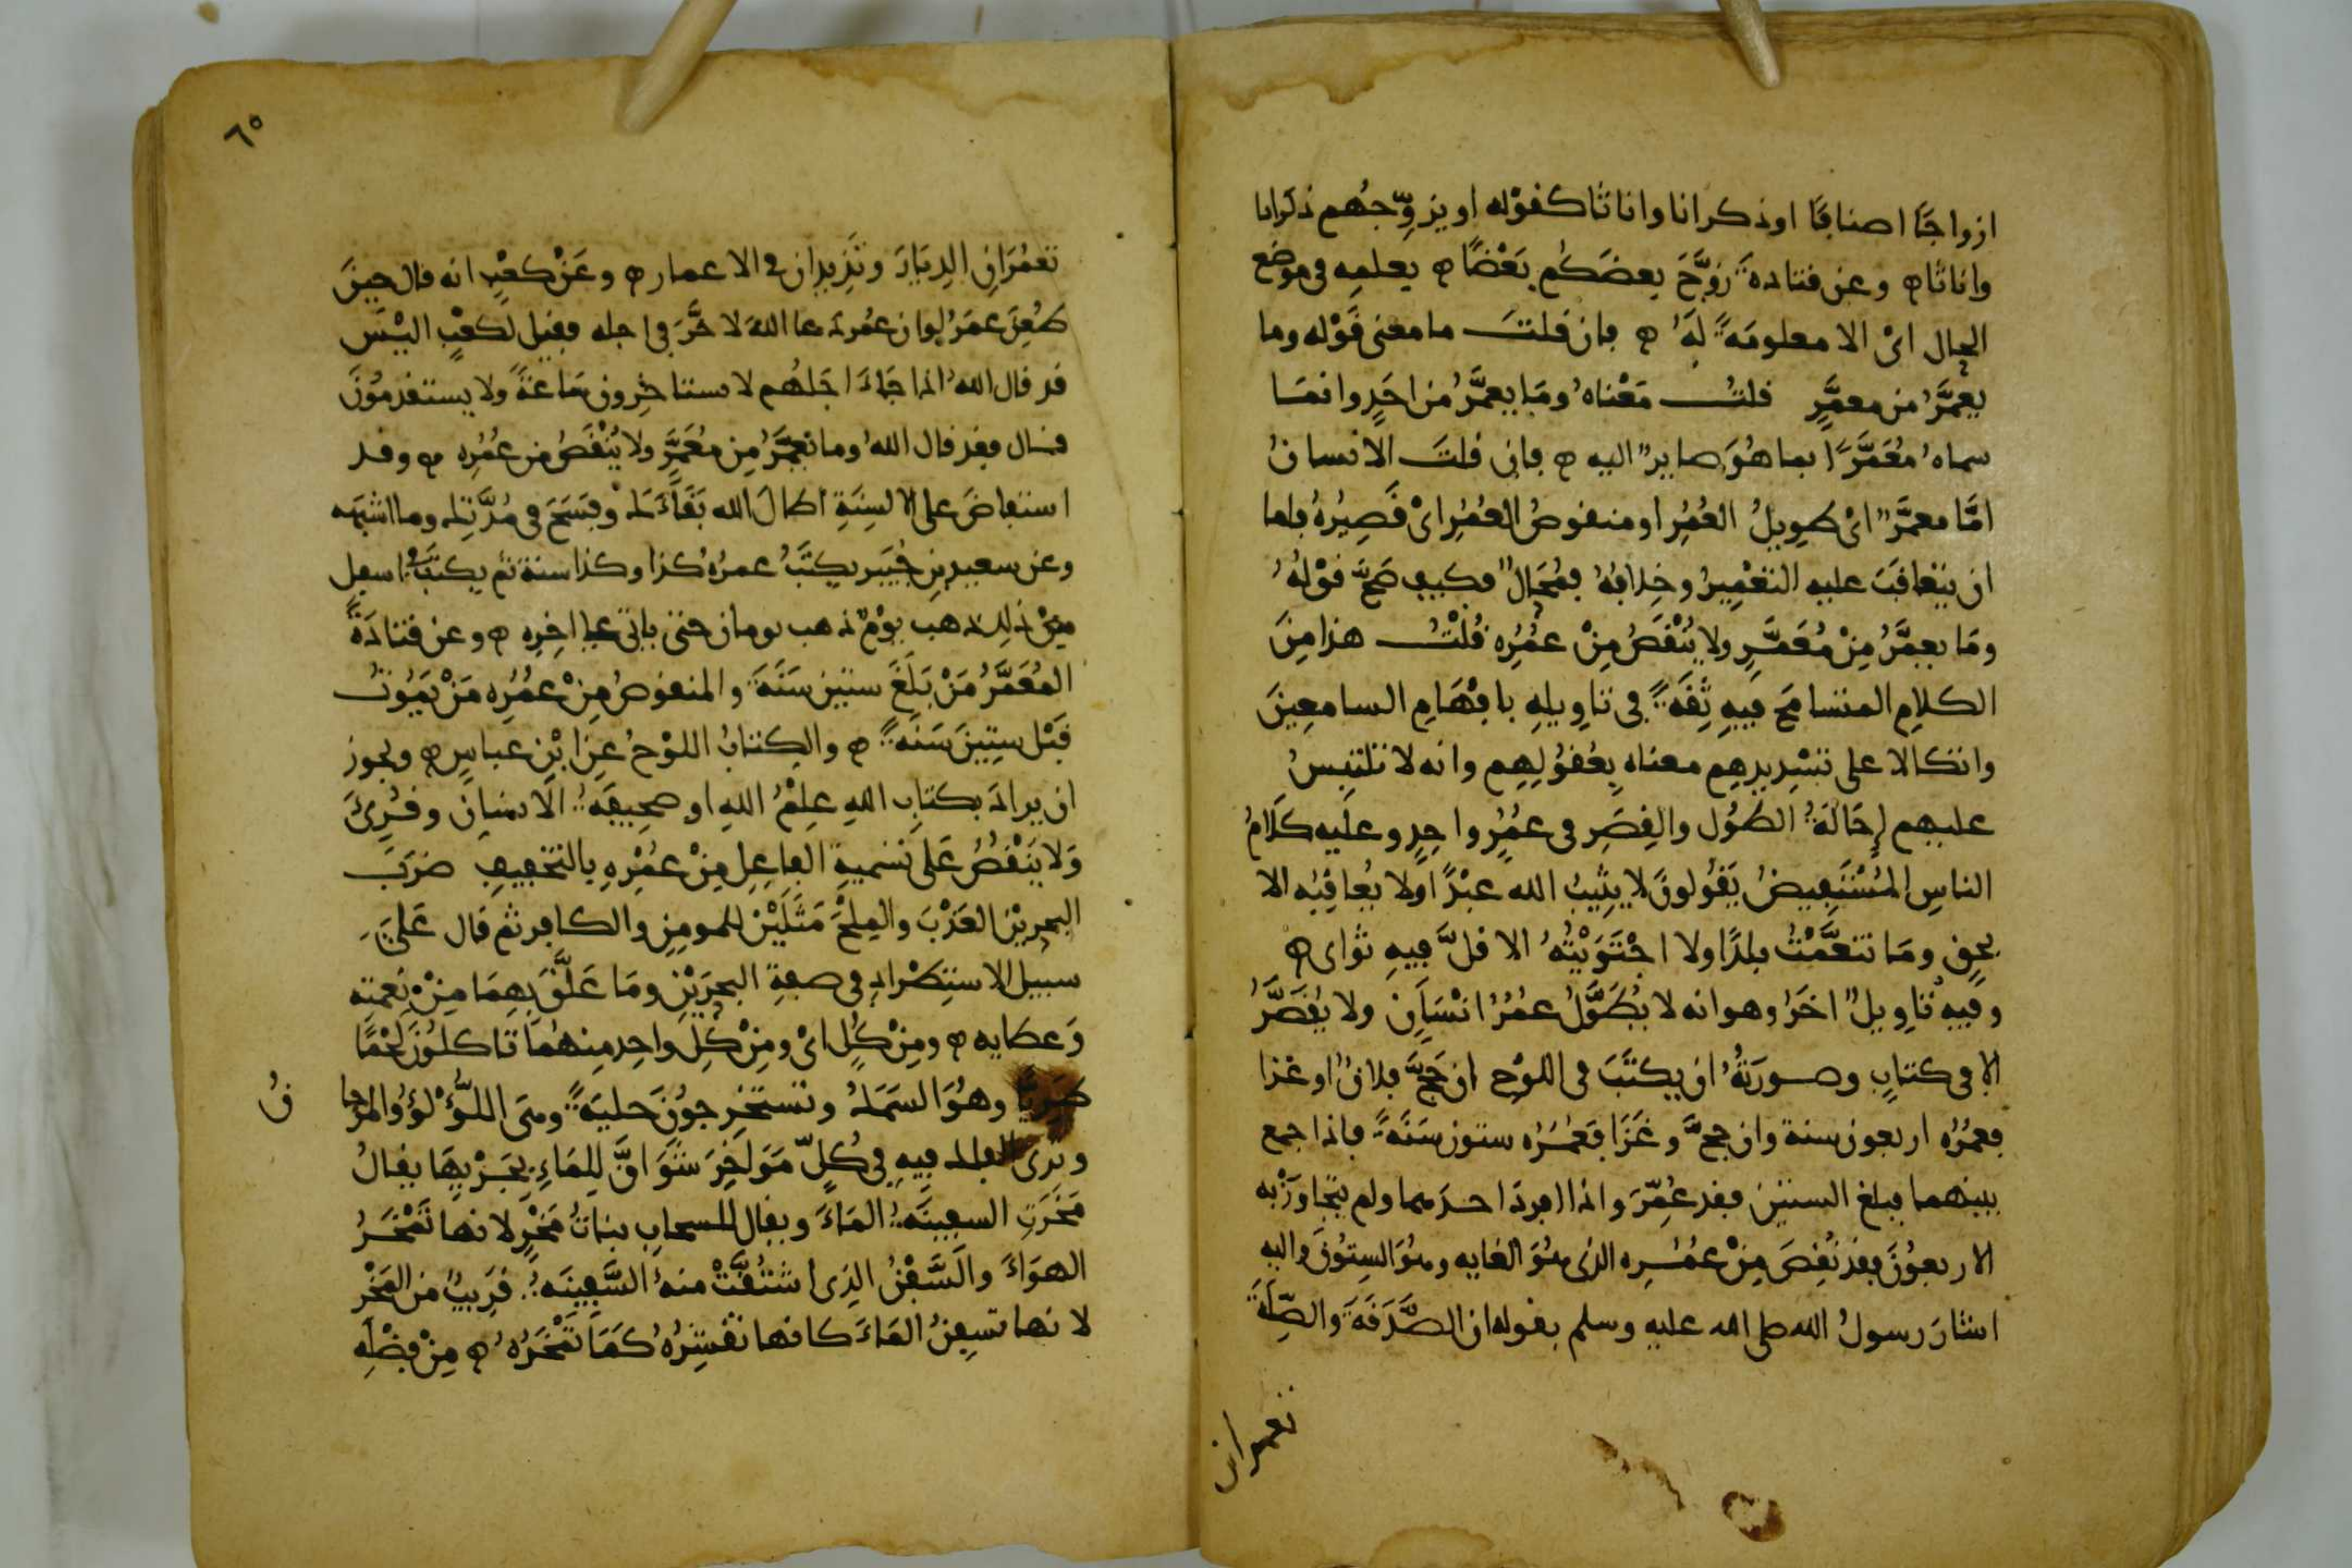 ازواجًا اصنافًا او ذكرانا واناثا كقوله او يزوّجهم ذكرانا
واناثا ه وعن قتادة زوّج بعضكم بعضًا ه بعلمه فى موضع
الحال اىْ الا معلومةً لهُ ه فان قلتَ ما معنى قَوْله وما
يعمَّرُ من معمَّرٍ قلتُ مَعْناهُ ومَا يعمَّرُ من احَدٍ وانمَا
سماهُ مُعَمَّرًا بما هُوَ صاير اليه ه فان قلتَ الانسانُ
امَّا معمَّرٌ اىْ طويلُ العُمُرِ او منقوصُ العُمُرِ اىْ قَصِيرُهُ فاما
ان يتعاقبَ عليه التعْمِيرُ وخِلافهُ فمُحَالٌ فكيف صَحَّ قوْلهُ
ومَا يعمَّرُ مِنْ مُعَمَّرٍ ولا يُنْقَصُ مِنْ عُمُرِه قُلْتُ هذا مِنَ
الكلامِ المتسامَحِ فيهِ ثِقَةً فى تاوِيلهِ بافْهَامِ السامعِينَ
واتكالا على تسْدِيدِهِم معناه بِعُقُولِهِم وانه لا تلتبِسُ
عليهم إحَالَةُ الطُول والقِصَرِ فى عُمُرٍ واحِدٍ وعليه كَلَامُ
الناسِ المُسْتَفِيضُ يَقُولونَ لا يثِيبُ الله عبْدًا ولا يُعاقِبُه الا
بحقٍ ومَا تنعَّمْتُ بلدًا ولا اجْتَوَيْتُهُ الا قلَّ فيهِ ثواى ه
وفيهِ تاوِيلٌ اخَرُ وهو انه لا يُطَوَّلُ عمُرُ انْسَانٍ ولا يُقَصَّرُ
الا فى كتابٍ وصورَتهُ ان يكتَبَ فى اللوْحِ ان حَجَّ فلانٌ او غزا
فعمُرُه اربعون سنة وان حجَّ وغَزَا فعُمُرُه ستون سَنَةً فاذا جمع
بينهما فبلغ الستين فقد عُمّرَ واذا افرد احدهما ولم يتجاوَزْ به
الاربعُونَ فقد نُقِصَ مِنْ عمُرِه الذى هُوَ الغايه وهُوَ السِتُونَ واليه
اشارَ رسولُ الله صلى الله عليه وسلم بقوله ان الصَّدَقَةَ والصِّلَةَ
تعمران
٦٥
تعمُرَانِ الدِيَارَ وتَزِيدان فى الاعمار ه وعَنْ كعْبٍ انه قال حِينَ
طُعِنَ عمَرُ لو ان عمُر دعا اللهَ لاخَّرَ فى اجله فقيل لكعْبٍ اليْسَ
قد قال اللهُ اذا جَاءَ اجَلهُم لا يستاخِرون سَاعَةً ولا يستقدمُونَ
قال فقد قال اللهُ وما يعمَّرُ مِن مُعَمَّرٍ ولا يُنْقَصُ من عُمُرِه ه وقد
استفاضَ على الالسِنَةِ اطالَ الله بَقَاءَكَ وفَسَحَ فى مُدَّتِكَ وما اشبَهه
وعن سعيد بنِ جُبَير يكتَبُ عمرُه كذا وكذا سنة ثم يكتَبُ اسفل
مِنْ ذلك ذهب يوْمٌ ذهب يومان حتى ياتى على اخِرِه ه وعن قتادَةَ
المُعَمَّرُ مَنْ بَلَغَ ستين سَنَةً والمنقوصُ مِنْ عمُرِه مَنْ يَمُوتُ
قَبْل سِتِينَ سَنَةً ه والكِتابُ اللوْحُ عن ابْنِ عباسٍ ه ويجوز
ان يراد بكتابِ اللهِ علِمُ اللهِ او صحِيفةُ الانسَانِ وقُرِئَ
وَلا يَنْقُصُ عَلى تسْميةِ الفاعِلِ مِنْ عمُرْهِ بالتخفيفِ ضرَبَ
البحرين العَذْبَ والمِلْحَ مَثَلَيْن للمومِنِ والكافِر ثم قال عَلىَ
سبيل الاستِطْرادِ فى صفةِ البحرَيْنِ ومَا عَلَّقَ بِهِمَا مِنْ نِعْمتِه
وَعطايه ه ومِنْ كلٍ اىْ ومِنْ كلِ واحِدٍ مِنهُما تاكلُونَ لَحْمًا
طَرِيًّا وهُوَ السَمكُ وتستخرِجونَ حليَةً وهى اللُّؤْلؤُ والمرجا
نُ
وترى الفلك فيهِ فى كُلّ مَوَاخِرَ شَوَاقَّ لِلمَاءِ بِجَرْيِهَا يقالُ
مَخَرَتِ السفينَةُ المَاءَ ويقال للسحابِ بناتُ مَخْرٍ لانها تَمْخَرُ
الهوَاءَ والسَّفْنُ الذِى اشتُقَّتْ منهُ السَّفِينَةُ قرِيبٌ من المَخْرِ
لانها تسفِنُ المَاءَ كانها تقْشِرُهُ كمَا تَمْخَرُهُ ه مِنْ فَضْلِهِ